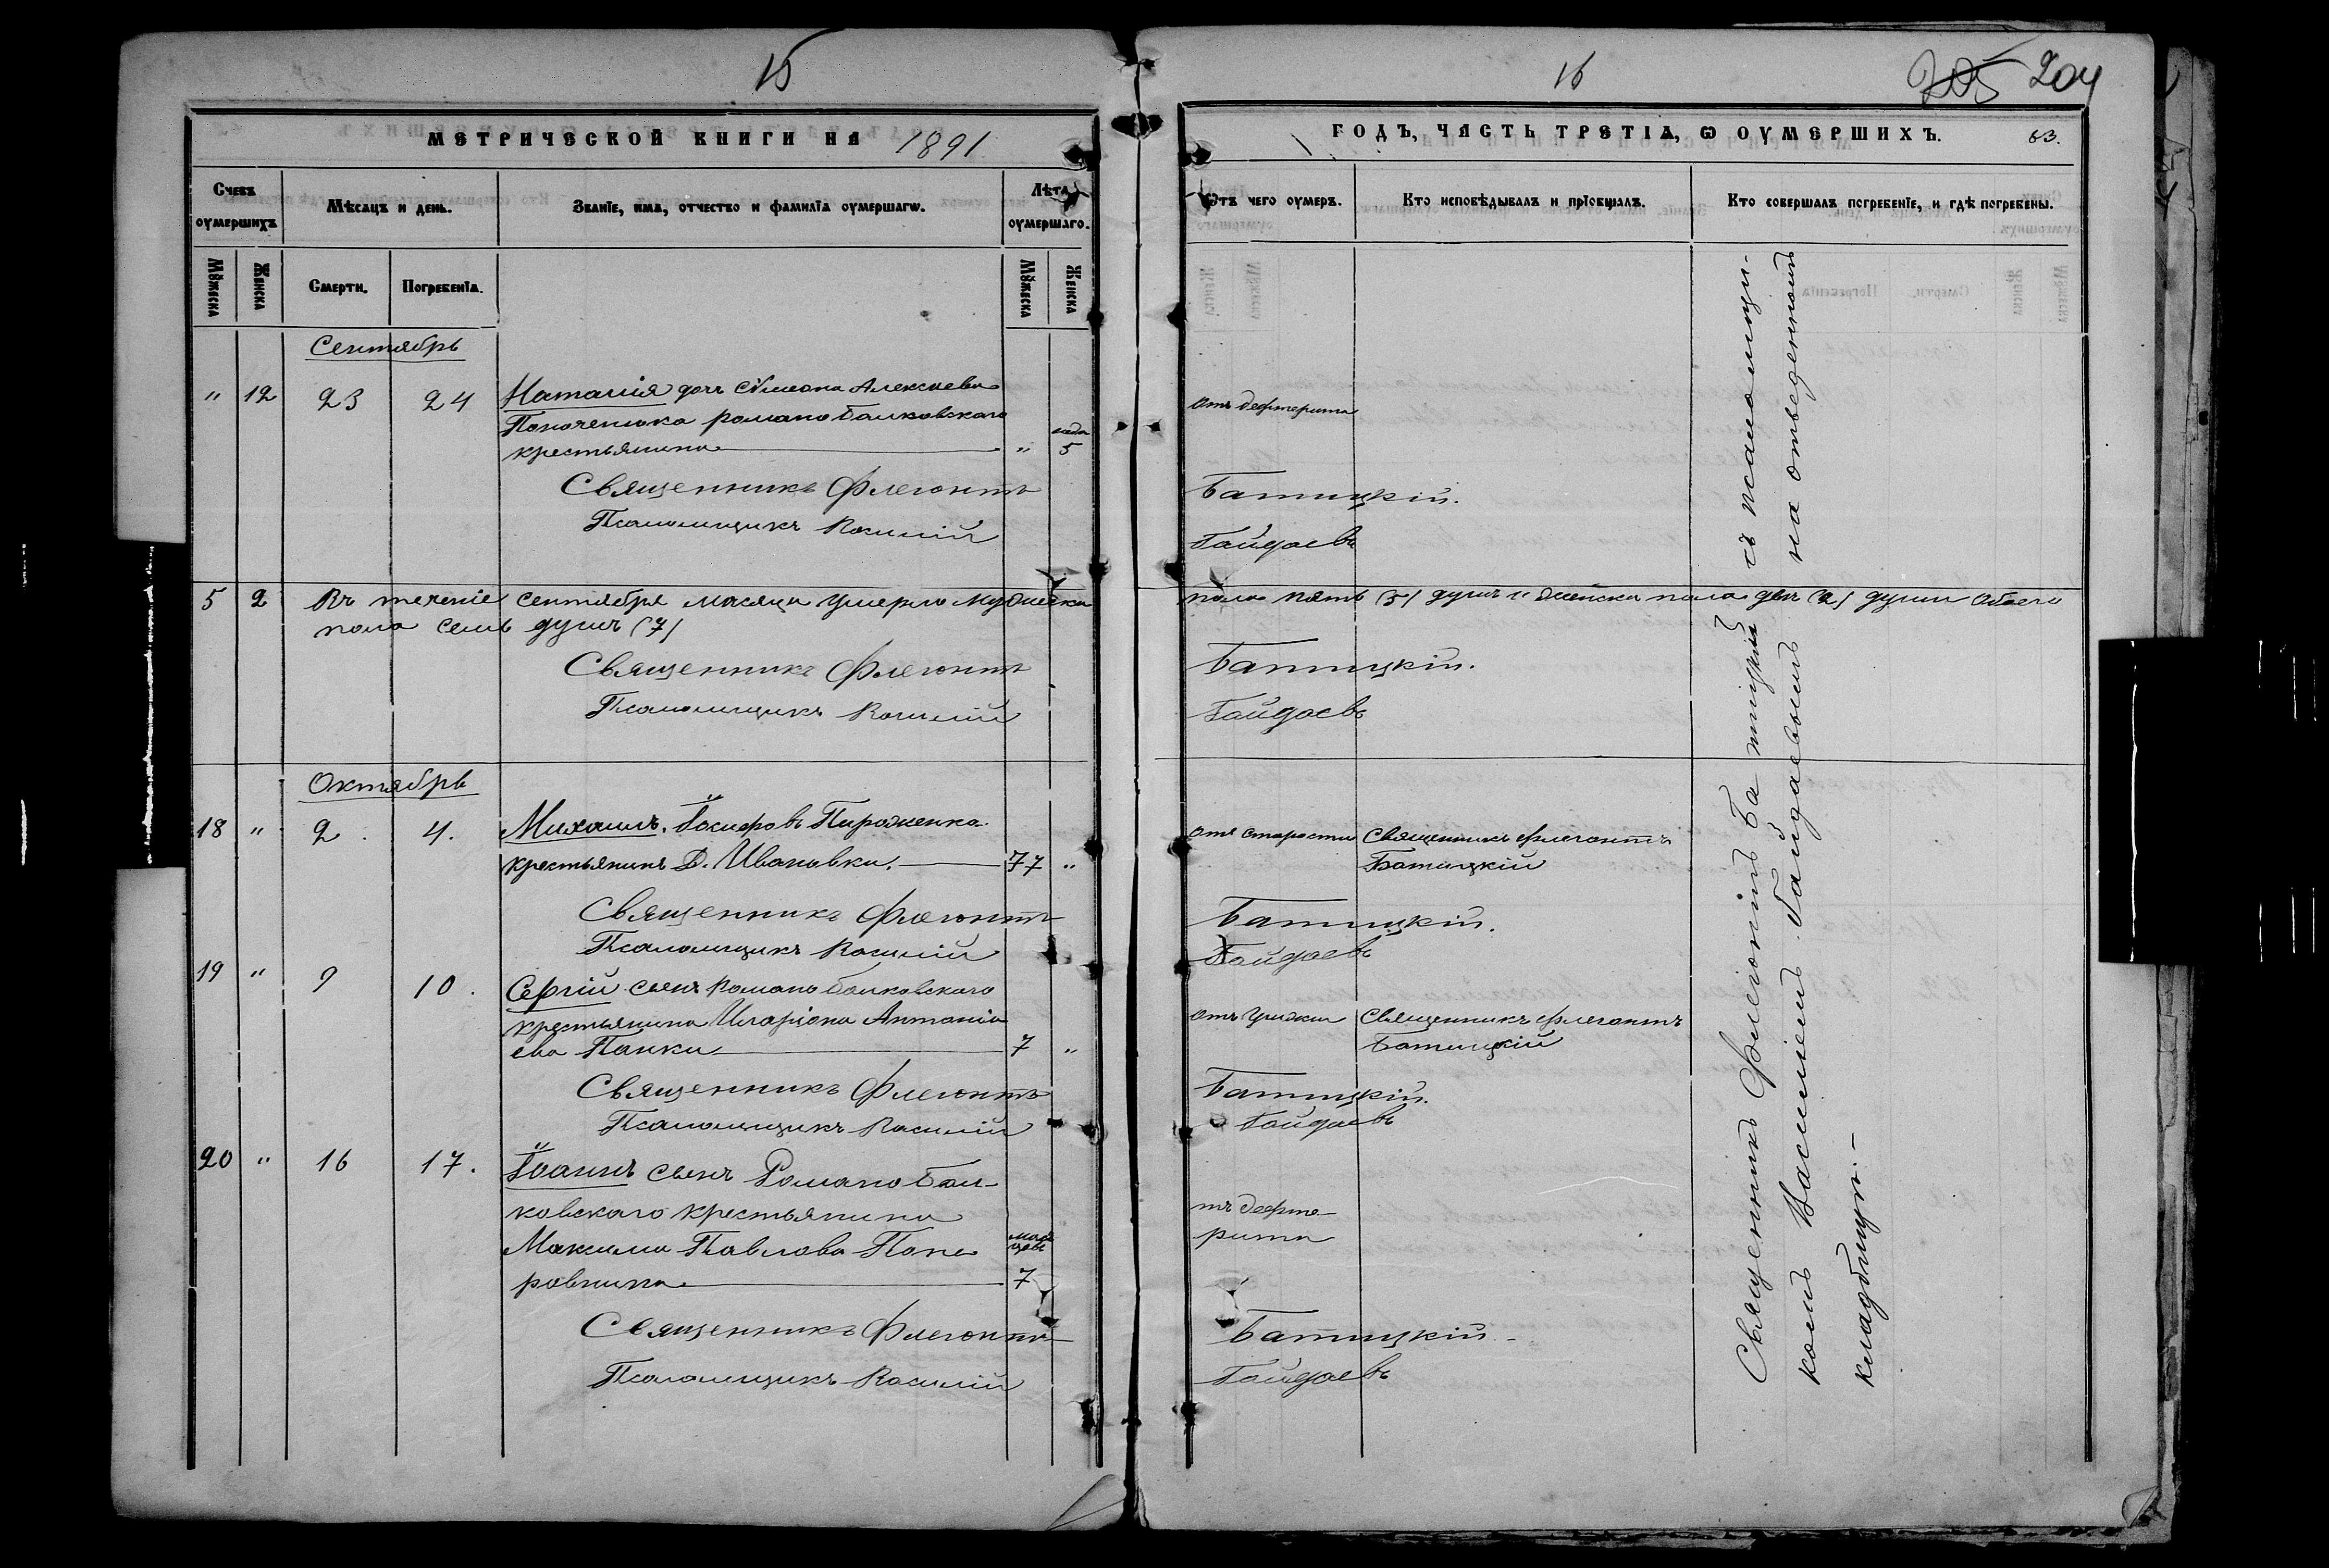 15
МЕТРИЧЕСКОЙ КНИГИ НА 1891
Счетъ оумершихъ
Мѣсяцъ и день.
Званїе, имѧ, отчество и фамилїѧ оумершагѡ.
Лѣта оумершаго.
Мꙋжеска
Женска
Смерти.
Погребенїѧ.
Мꙋжеска
Женска
Сентябрь
" 12 23 24 Наталія дочь Сѵмеона Алексіева
романо балковскаго
крестьянина " 5
Священникъ Флегонтъ
Псаломщикъ Василій
5 2 Въ теченіе сентября мѣсяца умерло мужеска
пола семь душъ (7)
Священникъ Флегонтъ
Псаломщикъ Василій
Октябрь
18 " 2. 4. Михаилъ Іосифовъ Пироженко
крестьянинъ Д. Ивановки. 77 "
Священникъ Флегонтъ
Псаломщикъ Василій
19 " 9 10. Сергій сынъ Романо балковскаго
крестьянина Иларіона Антоніа
ева Панки 7 "
Священникъ Флегонтъ
Псаломщикъ Василій
20 " 16 17. Іоаннъ сынъ Романо бал
ковскаго крестьянина
Максима Павлова
мѣся
цевъ
7
Священникъ Флегонтъ
Псаломщикъ Василій
16
205 204
ГОДЪ, ЧАСТЬ ТРЕТІѦ, Ѡ ОУМЕРШИХЪ. 63.
Отъ чего оумеръ.
Кто исповѣдывалъ и прїобщалъ.
Кто совершалъ погребенїе, и гдѣ погребены.
отъ дефтерита
Батицкій.
Гайдаевъ
пола пять (5) душъ и женска пола двѣ (2) души обоего
Батицкій.
Гайдаевъ
отъ старости Священникъ Флегонтъ
Батицкій
Батицкій.
Гайдаевъ
Священникъ Флегонтъ
Батицкій
Батицкій.
Гайдаевъ
тъ дефте
рита
Батицкій
Гайдаевъ
Священникъ Флегонтъ Батицкій съ псаломщи-
комъ Василіемъ Гайдаевымъ на отведенномъ
кладбищѣ.